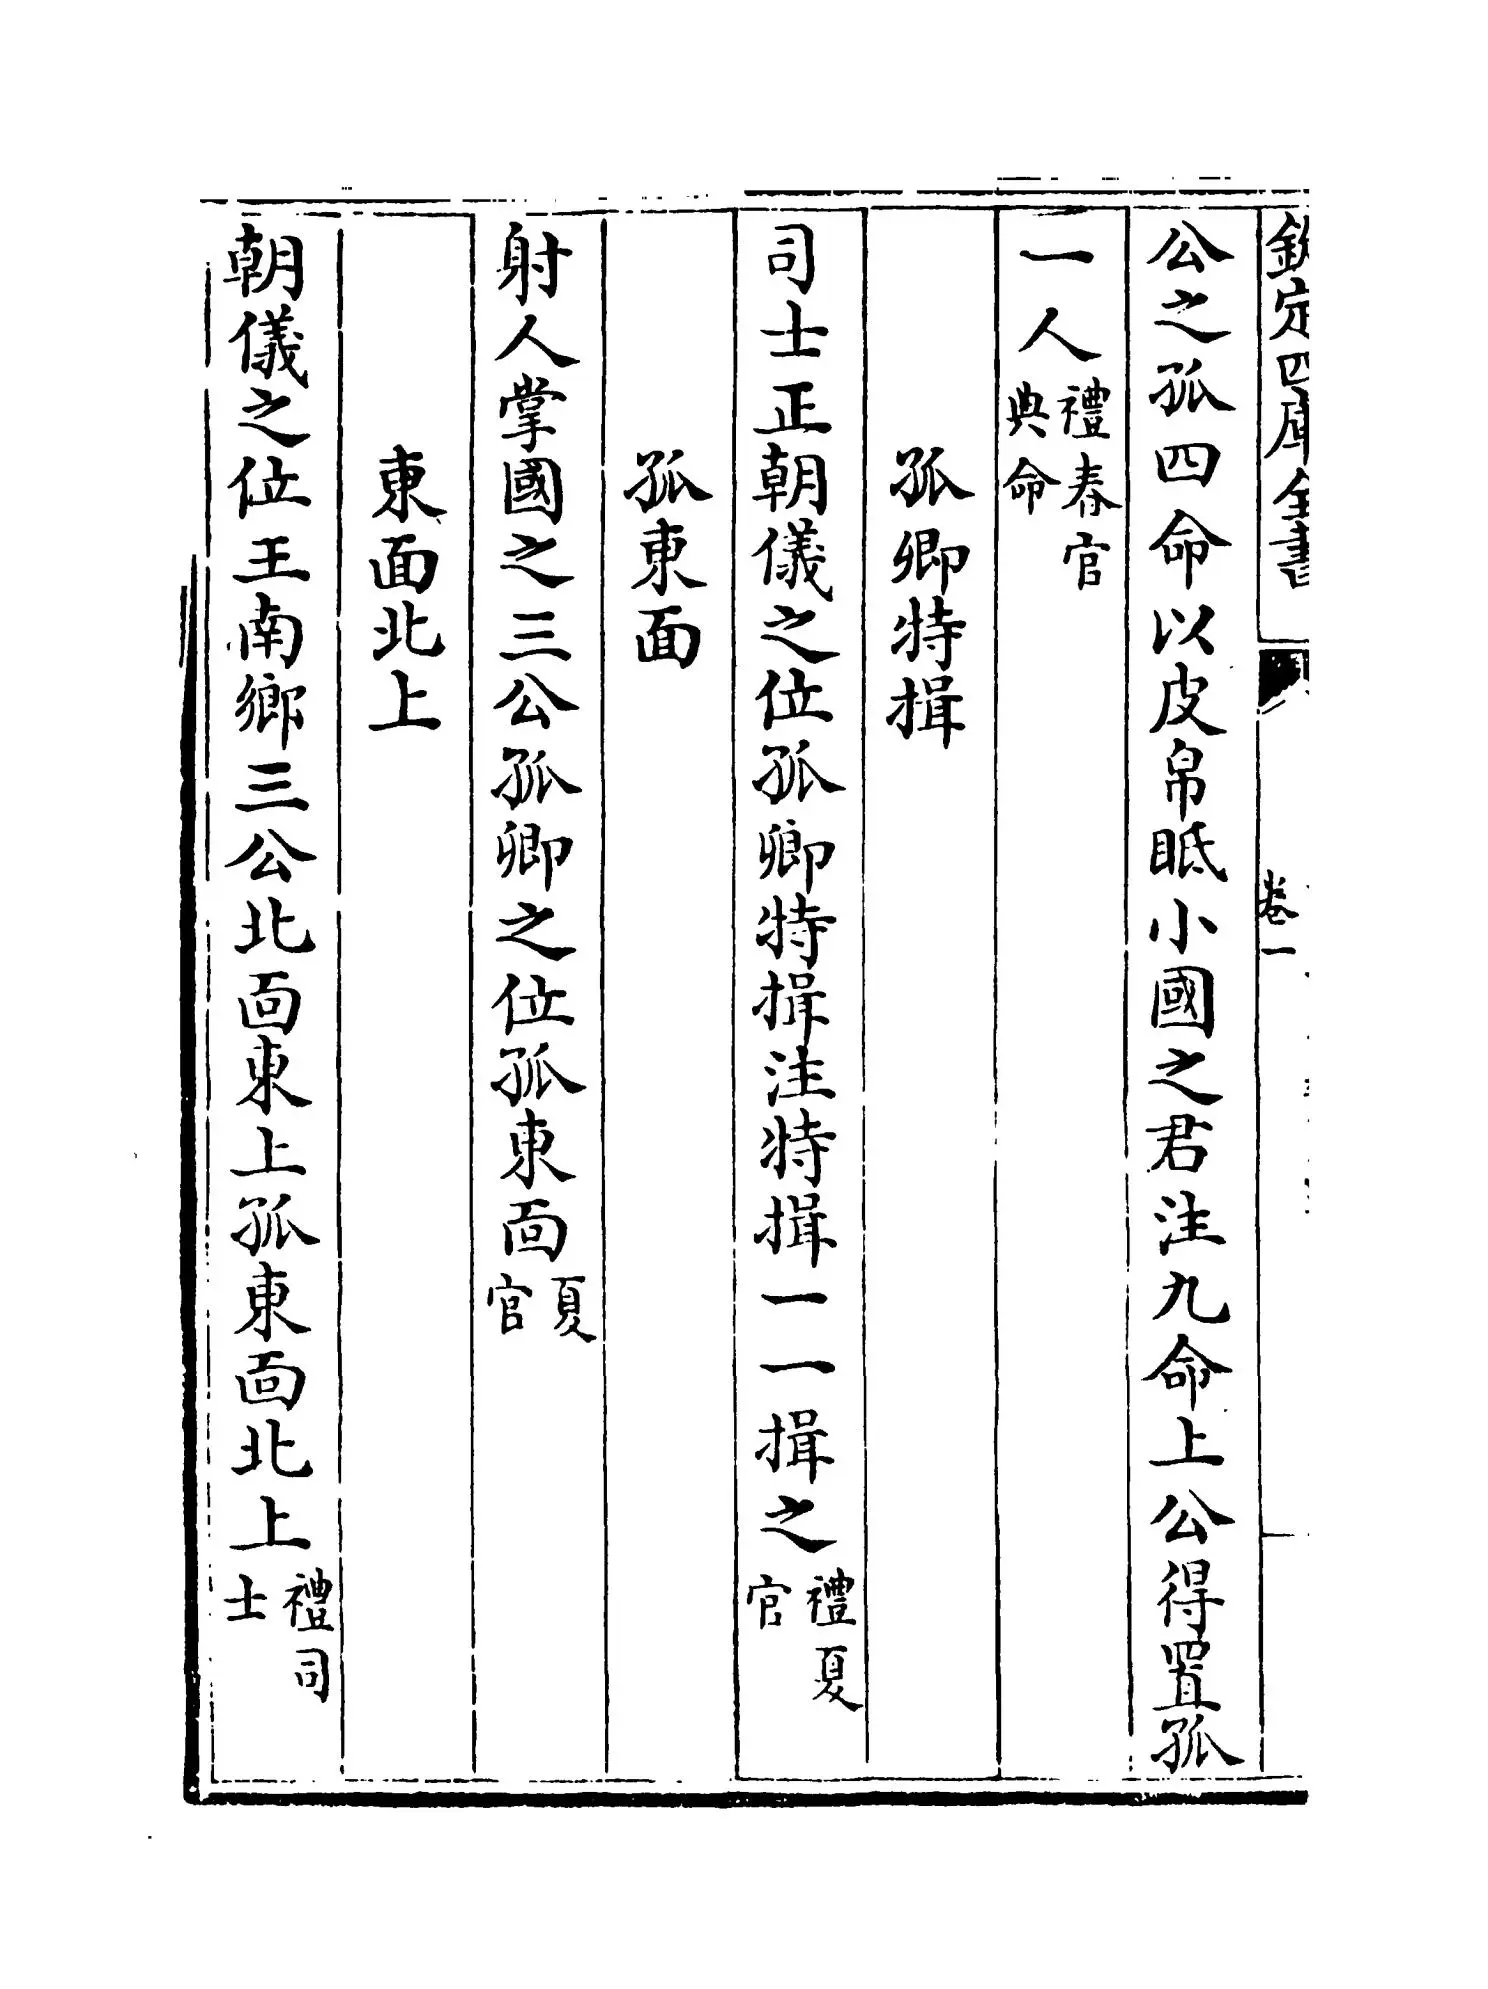 欽定四庫全書
卷一
公之孤四命以皮帛眡小國之君注九命上公得置孤
一人禮春官典命
孤卿特揖
司士正朝儀之位孤卿特揖注特揖一一揖之禮夏官
孤東面
射人掌國之三公孤卿之位孤東面夏官
東面北上
朝儀之位王南鄉三公北面東上孤東面北上禮司士